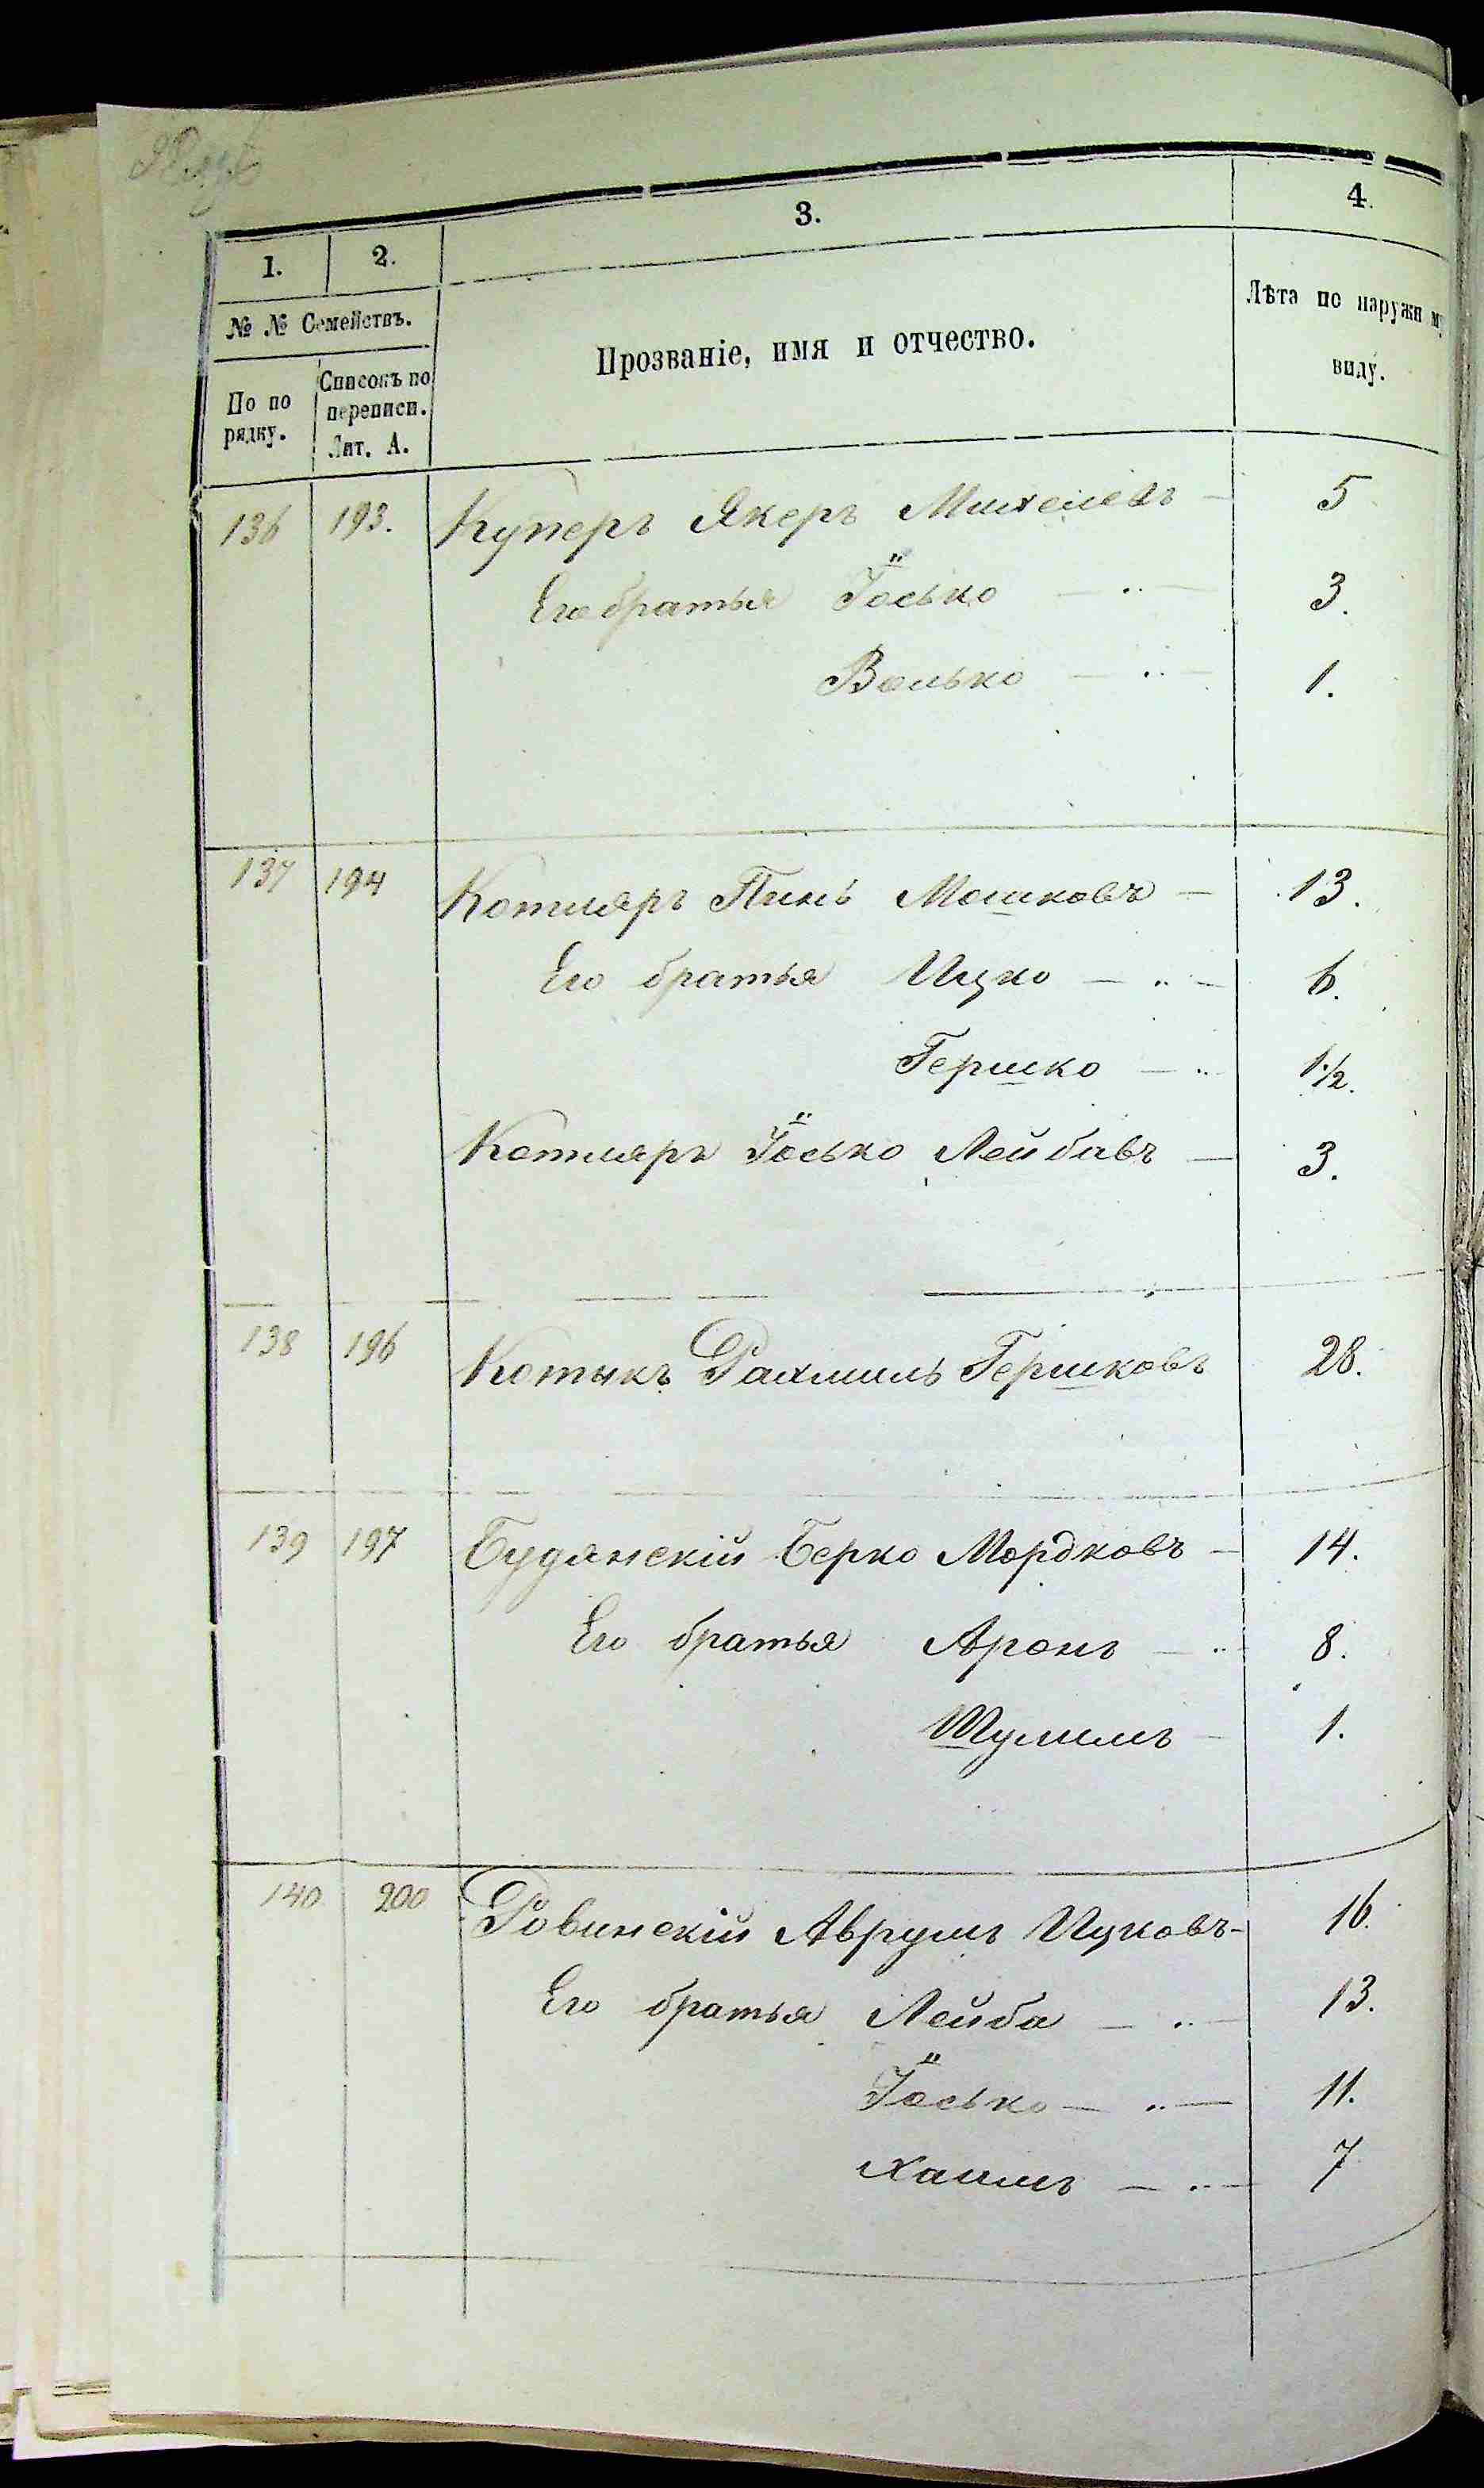 1. 2. 3. 4.
№ № Семействъ.
По по рядку.
Списокъ по переписи. Лит. А.
Прозваніе, имя и отчество.
Лѣта по наружн му виду.
136 193. Куперъ Якеръ Михелевъ - 5
Его братья Іосько - " - 3.
Волько - " - 1.
137 194 Котляръ Пинь Мошковъ - 13.
Его братья Ицко - " - 6.
Гершко - " 1 1/2.
Котляръ Іосько Лейбовъ - 3.
138 196 Котыкъ Рахмиль Гершковъ 28.
139 197 Будянскій Берко Мордковъ - 14.
Его братья Аронъ - " 8.
Шулимъ - 1.
140 200 Ровинскій Аврумъ Ицковъ - 16.
Его братья Лейба - " - 13.
Іосько - " - 11.
Хаимъ - " - 7